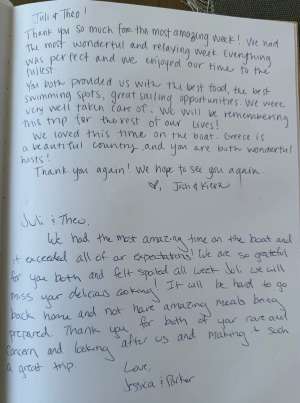 Juli & Theo!
Thank you so much for the most amazing week! We had
the most wonderful and relaxing week. Everything
was perfect and we enjoyed our time to the
fullest
You both provided us with the best food, the best
swimming spots, great sailing opportunities. We were
very well taken care of. We will be remembering
this trip for the rest of our lives!
We loved this time on the boat. Greece is
a beautiful country and you are both wonderful
hosts!
Thank you again! We hope to see you again
♡, Josh &
Juli & Theo,
We had the most amazing time on the boat and
it exceeded all of our expectations! We are so grateful
for you both and felt spoiled all week. Juli we will
miss your delicious cooking! It will be hard to go
back home and not have amazing meals being
prepared. Thank you for both of your care and
concern and looking after us and making & such
a great trip.
Love,
Jessica & Parker